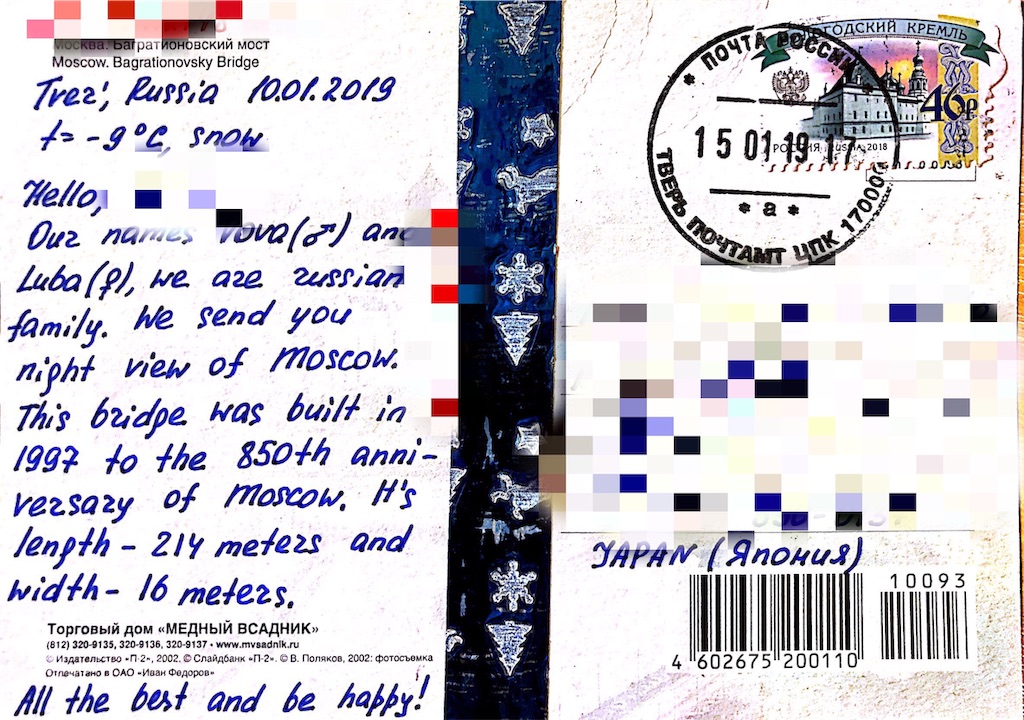 Москва. Багратионовский мост
Moscow. Bagrationovsky Bridge
Tver', Russia 10.01.2019
t= -9°C, snow
Hello,
Our names Vova(♂) and
Luba(♀), we are russian
family. We send you
night view of Moscow.
This bridge was built in
1997 to the 850th anni-
versary of Moscow. It's
length - 214 meters and
width - 16 meters.
Торговый дом «МЕДНЫЙ ВСАДНИК»
(812) 320-9135, 320-9136, 320-9137 • www.mvsadnik.ru
© Издательство «П-2», 2002, © Слайдбанк «П-2». © В. Поляков, 2002: фотосъемка
Отпечатано в ОАО «Иван Федоров»
All the best and be happy!
ПОЧТА РОССИИ
15 01 19 17
* а *
ТВЕРЬ ПОЧТАМТ ЦПК 170000
КРЕМЛЬ
46р
РОССИЯ RUSSIA 2018
JAPAN (Япония)
10093
4 602675 200110